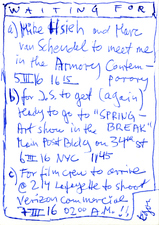 WAITING FOR
a) Mike Hsieh and Marc
van Schendel to meet me
in the Armory Contem-
5 III 16 16 15 porary
b) for J.S. to get (again)
ready to go to "SPRING-
Art show in the BREAK"
Main Post Bldg on 34th st
6 III 16 NYC 1145
c) For film crew to arrive
@ 214 Lafayette to shoot
Verizon commercial
7 III 16 0200 A.M.!!